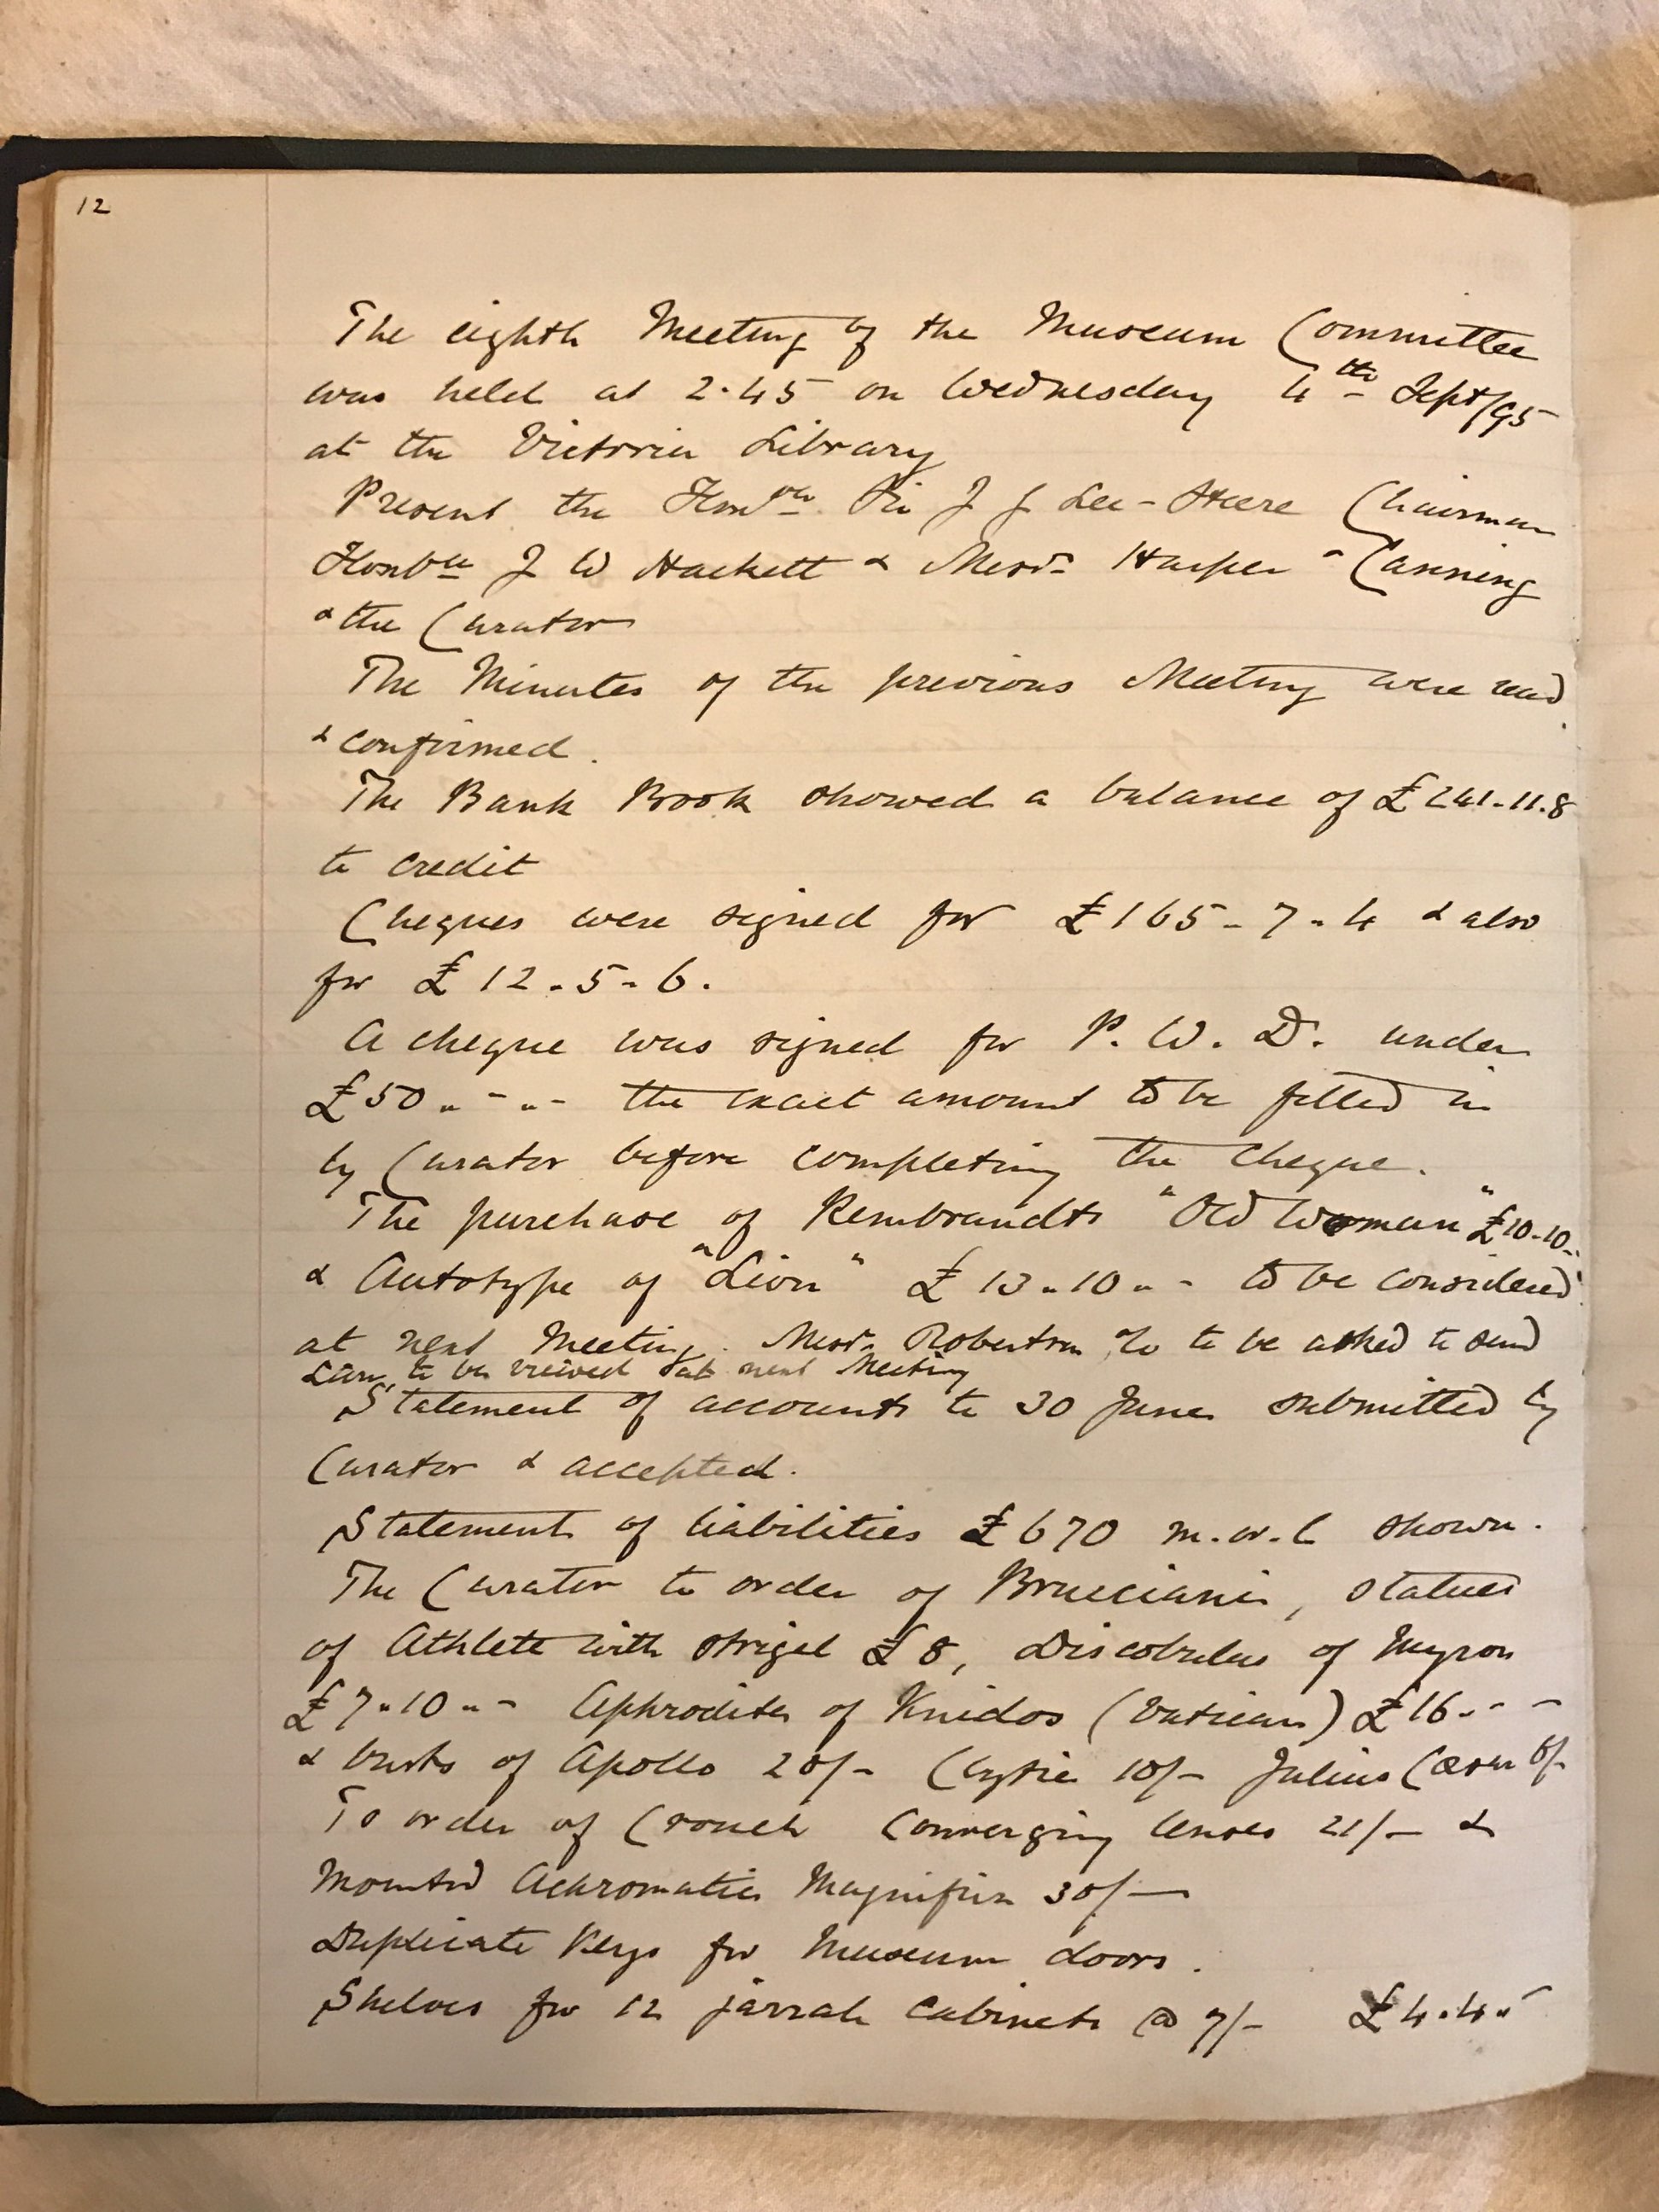 12
The eighth Meeting of the Museum Committee
was held at 2.45 on Wednesday 4th Sept/95
at the Victoria Library
Present the Honble Sir J G Lee-Steere Chairman
Honble J W Hackett & Messrs Harper & Canning
& the Curator
The Minutes of the previous Meeting were read
& confirmed.
The Bank Book showed a balance of £241-11.8
to credit
Cheques were signed for £165-7-4 & also
for £12-5-6.
A cheque was signed for P. W. D. under
£50 " - " - the exact amount to be filled in
by Curator before completing the cheque.
The purchase of Rembrandts "Old Woman" £10-10-
& Autotype of "Lion" £13-10 " - to be considered
at next Meeting. Messrs Robertson Co to be asked to send
Lion to be viewed at next Meeting
Statement of accounts to 30 June submitted by
Curator & accepted.
Statement of liabilities £670 m.or.l shown.
The Curator to order of Brucciani, statues
of Athlete with strigel £8, Discobulus of Myron
£7-10 " - Aphrodite of Knidos (Vatican) £16 - - -
& busts of Apollo 20/- Clytie 10/- Julius Cæsar 6/-
To order of Crouch Converging lenses 21/- &
Mounted Achromatic Magnifier 30/-
Duplicate Keys for Museum doors.
Shelves for 12 jarrah cabinets @ 7/- £4.4"-